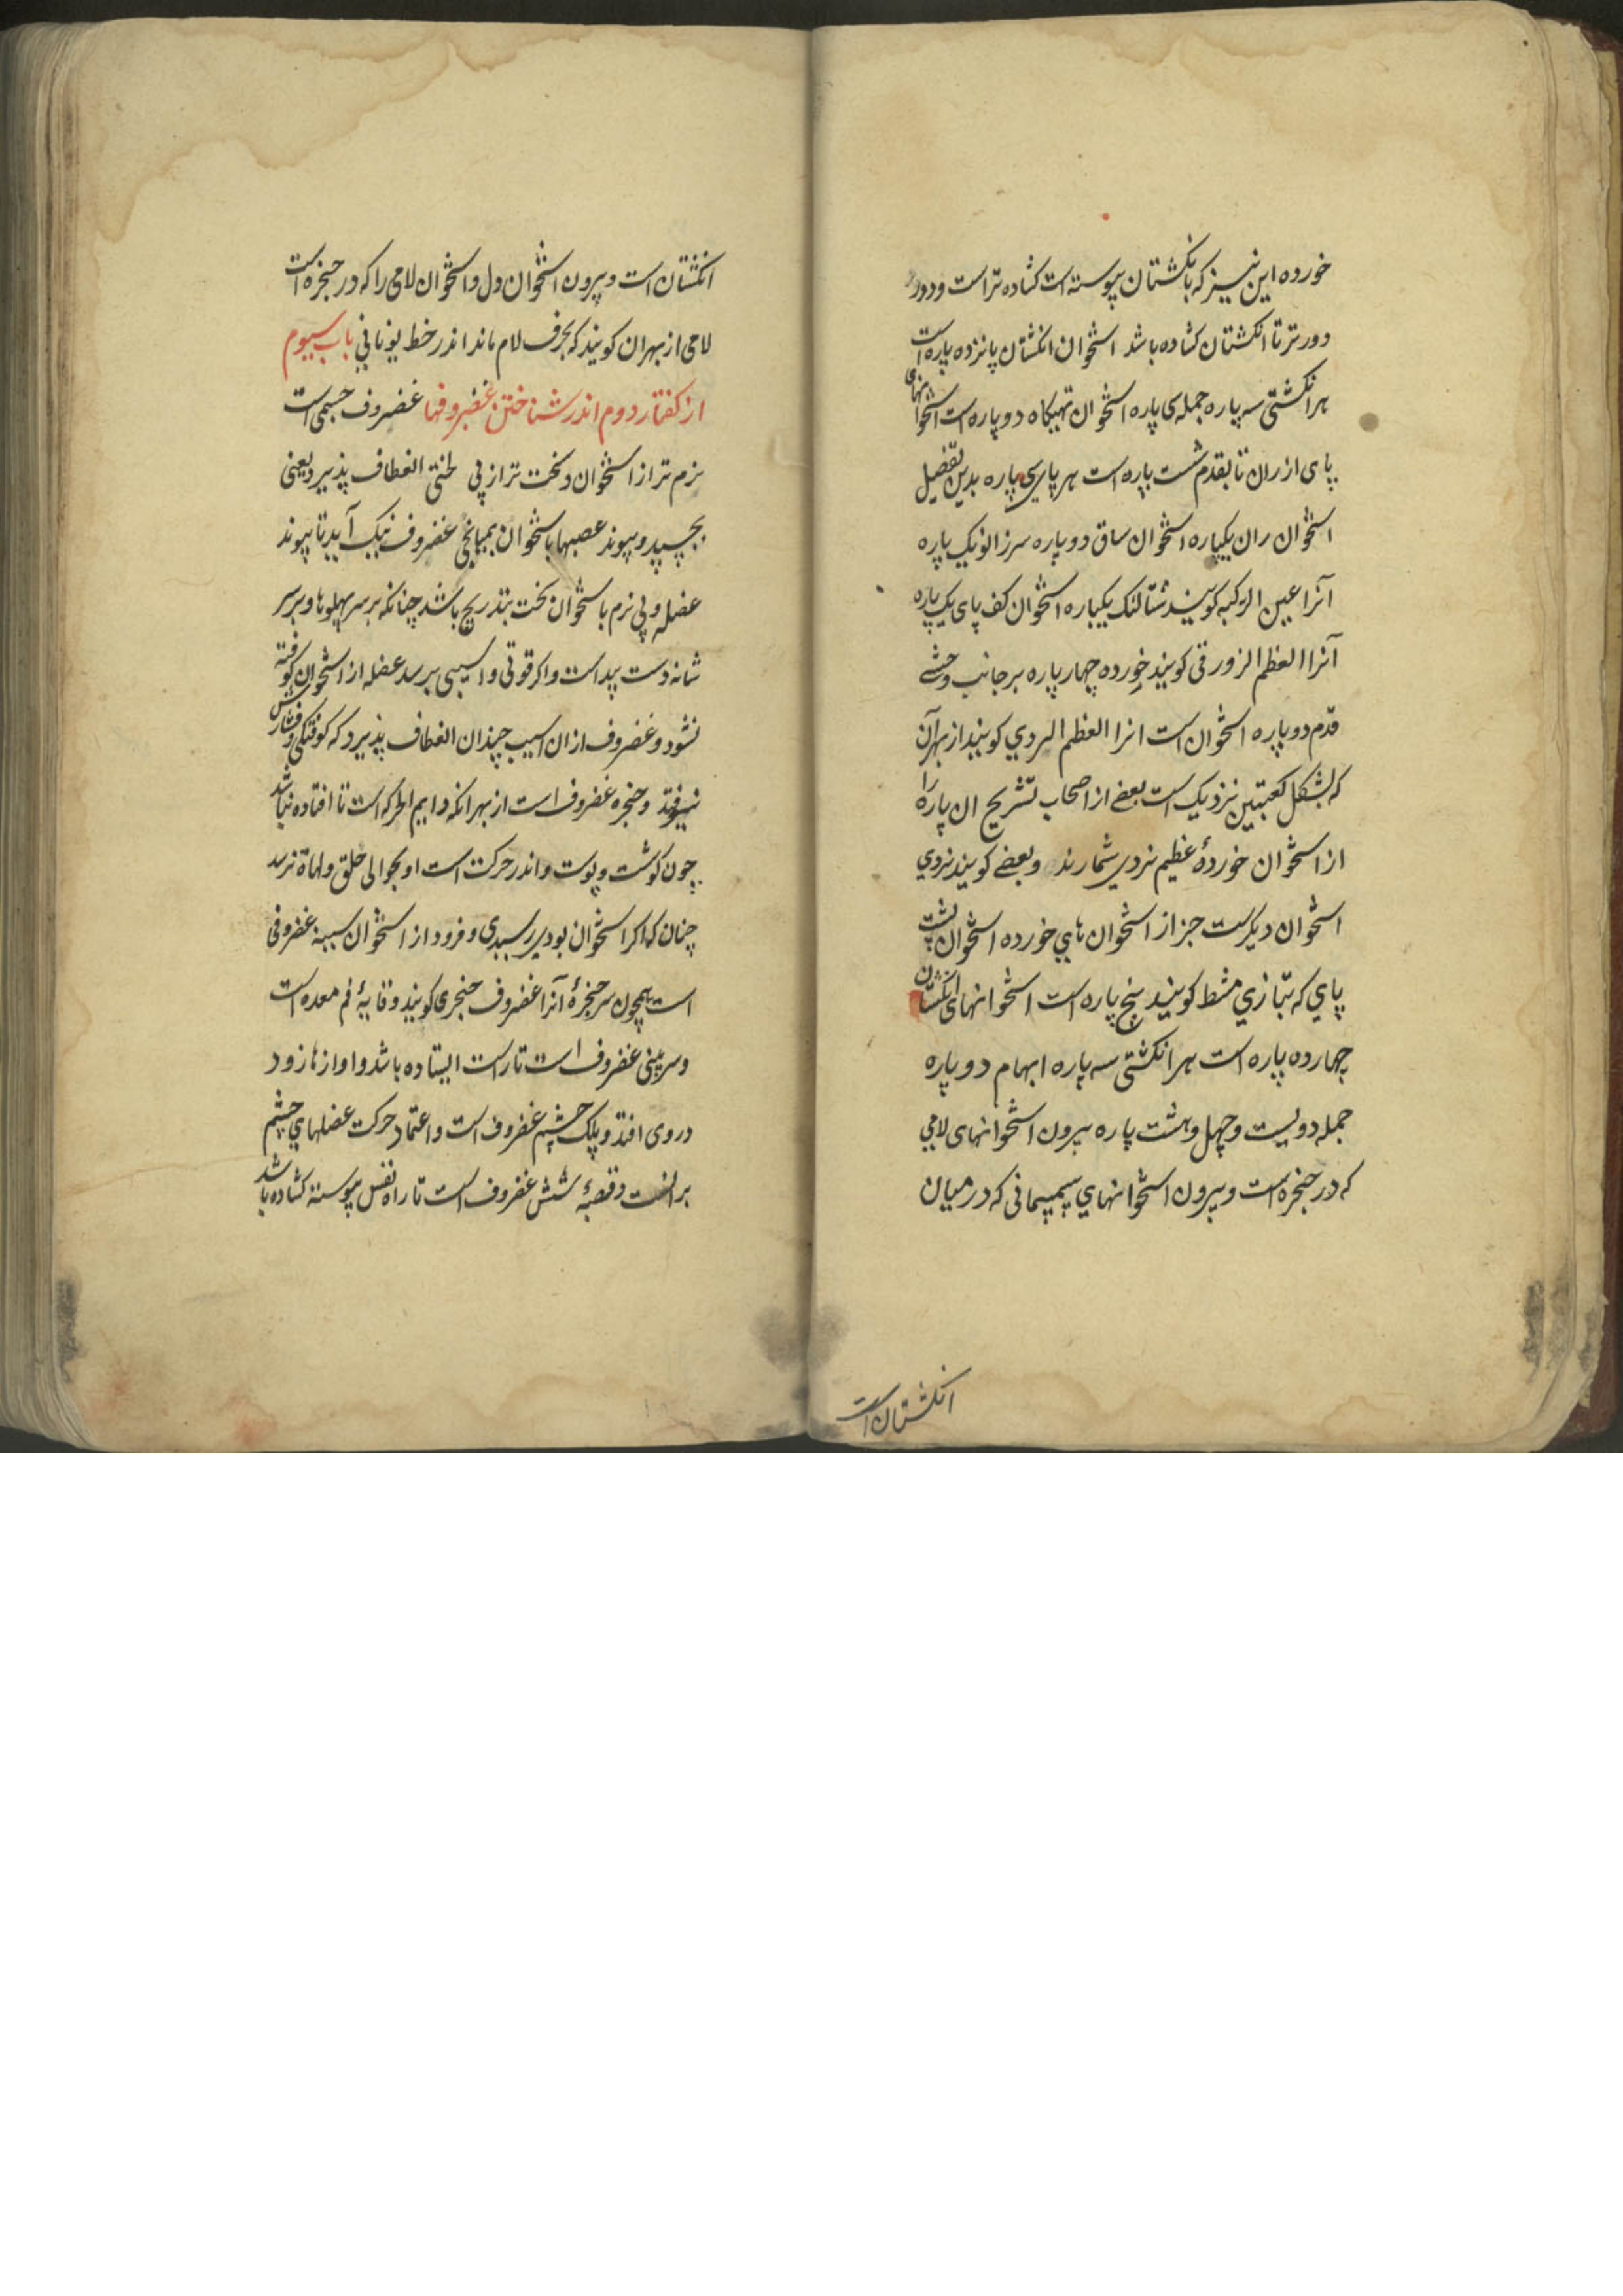 خورده این نیز که بانکشتان پیوسته است کشاده تر است و دور
دورتر تا انکشتان کشاده باشد استخوان انکشتان پانزده پاره است
هر انکشتی سه پاره جمله سی پاره استخوان تهیکاه دو پاره است استخوانهای
پای از ران تا بقدم شست پاره است هر پای سی پاره بدین تفصیل
استخوان ران یکپاره استخوان ساق دو پاره سر زانو یک پاره
آنرا عین الرکبه کویند شتالنک یکپاره استخوان کف پای یک پاره
آنرا العظم الزورقی کویند خورده چهار پاره بر جانب وحشی
قدم دو پاره استخوان است انرا العظم النردی کویند از بهر آن
که بشکل کعبتین نزدیک است بعضی از اصحاب تشریح ان پاره را
از استخوان خوردهٔ عظیم نردی شمارند وبعضی کویند نردی
استخوان دیکرست جز از استخوان های خورده استخوان پشت
پای که بتازی مشط کویند پنج پاره است استخوانهای انکشتان
چهارده پاره است هر انکشتی سه پاره ابهام دو پاره
جمله دویست و چهل و هشت پاره بیرون استخوانهای لامی
که در حنجره است و بیرون استخوانهای سیمسمانی که در میان
انکشتان است
انکشتان است و بیرون استخوان دل و استخوان لامی را که در حنجره است
لامی از بهر ان کویند که بحرف لام ماند اندر خط یونانی باب سیوم
از کفتار دوم اندر شناختن غضروفها غضروف جسمی است
نرم تر از استخوان و سخت تر از پی لختی انعطاف پذیرد یعنی
بچسپد و پیوند عصبها باستخوان بمیانجی غضروف نیک آید تا پیوند
عضله و پی نرم باستخوان سخت بتدریج باشد چنانکه بر سر پهلوها و بر سر
شانه دست پیداست و اکر قوتی و اسیبی برسد عضله از استخوان کوفته
نشود و غضروف از ان اسیب چندان انعطاف پذیرد که کوفتکی و فشارش
نیوفتد و حنجره غضروف است از بهر انکه دایم الحرکه است تا افتاده نباشد
چون کوشت و پوست و اندر حرکت است او بحوالی حلق ولهاة نرسد
چنان که اکر استخوان بودی برسیدی و فرود از استخوان سینه غضروفی
است همچون سر حنجرهٔ آنرا غضروف حنجری کویند وقایهٔ فم معده است
و سر بینی غضروف است تا راست ایستاده باشد و اوازها زود
در وی افتد و پلک چشم غضروف است و اعتماد حرکت عضلهای چشم
بر انست و قصبهٔ شش غضروف است تا راه نفس پیوسته کشاده باشد